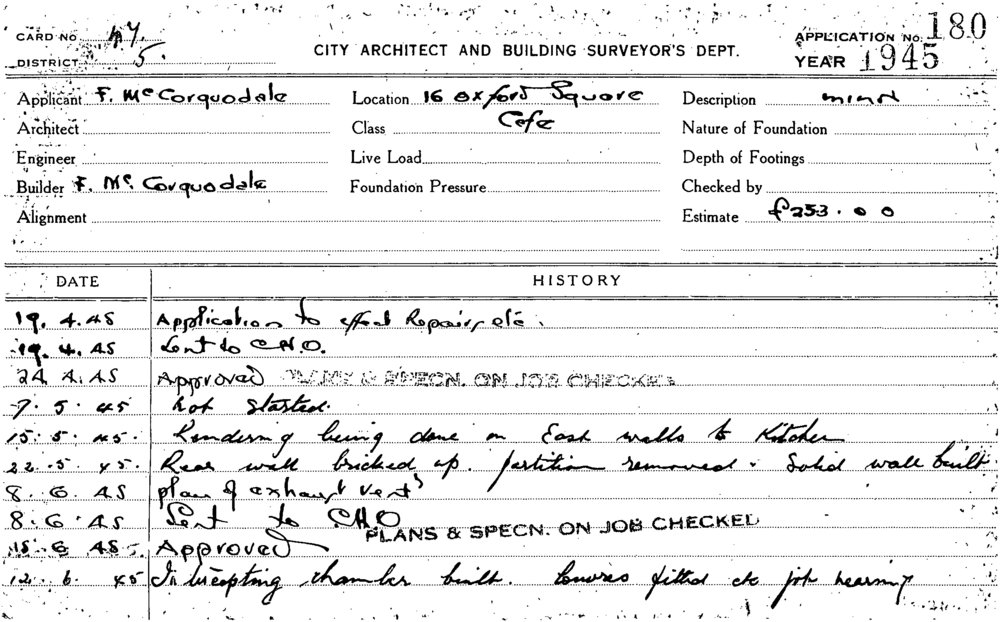 CARD NO. 47.
APPLICATION No. 180
DISTRICT 5.
CITY ARCHITECT AND BUILDING SURVEYOR'S DEPT.
YEAR 1945
Applicant F. McCorquodale Location 16 Oxford Square Description minor
Architect Class Cafe Nature of Foundation
Engineer Live Load Depth of Footings
Builder F. McCorquodale Foundation Pressure Checked by
Alignment Estimate £253.00
DATE HISTORY
19.4.45 Application to effect Repairs, etc.
19.4.45 Sent to C.H.O.
24.4.45 Approved PLANS & SPECN. ON JOB CHECKED
7.5.45 Not started.
15.5.45. Rendering being done on East walls to Kitchen
22.5.45. Rear wall bricked up. partition removed. Solid wall built.
8.6.45 plan of exhaust vents
8.6.45 Sent to CHO
PLANS & SPECN. ON JOB CHECKED
15.6.45. Approved
12.6.45 Intercepting chamber built. Louvres fitted etc job nearing